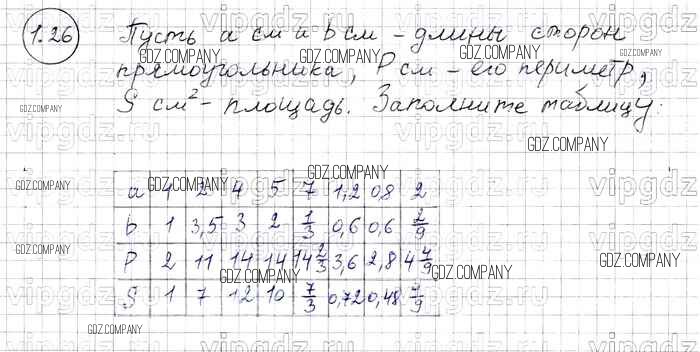 1.26 Пусть a см и b см – длины сторон
прямоугольника, P см – его периметр,
S см² – площадь. Заполните таблицу:
a 1 2 4 5 7 1,2 0,8 2
b 1 3,5 3 2 1/3 0,6 0,6 2/9
P 2 11 14 14 14 2/3 3,6 2,8 4 4/9
S 1 7 12 10 7/3 0,72 0,48 4/9